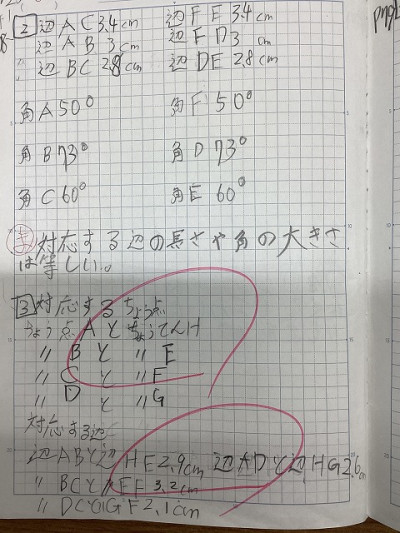 2 辺AC3.4cm 辺FE3.4cm
辺AB3cm 辺FD3cm
辺BC2.8cm 辺DE2.8cm
角A50° 角F50°
角B73° 角D73°
角C60° 角E60°
ま 対応する辺の長さや角の大きさ
は等しい。
3 対応するちょう点
ちょう点AとちょうてんH
〃 Bと 〃E
〃 Cと 〃F
〃 Dと 〃G
対応する辺
辺ABと辺HE2.9cm 辺ADと辺HG2.6cm
〃BCと〃EF3.2cm
〃DCとGF2.1cm